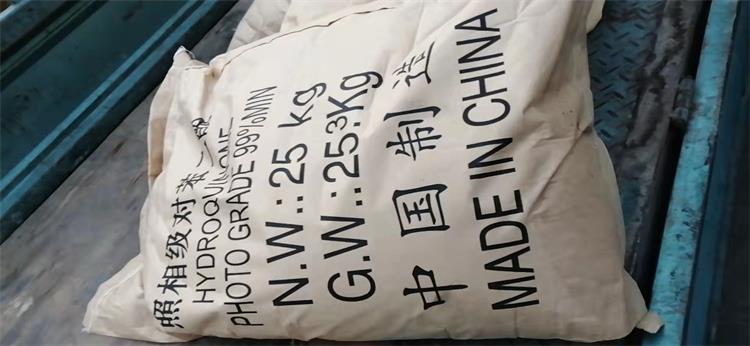 照相级对苯二酚
HYDROQUINONE
PHOTO GRADE 99%MIN
N.W.:25 kg
G.W.:25.3Kg
中国制造
MADE IN CHINA